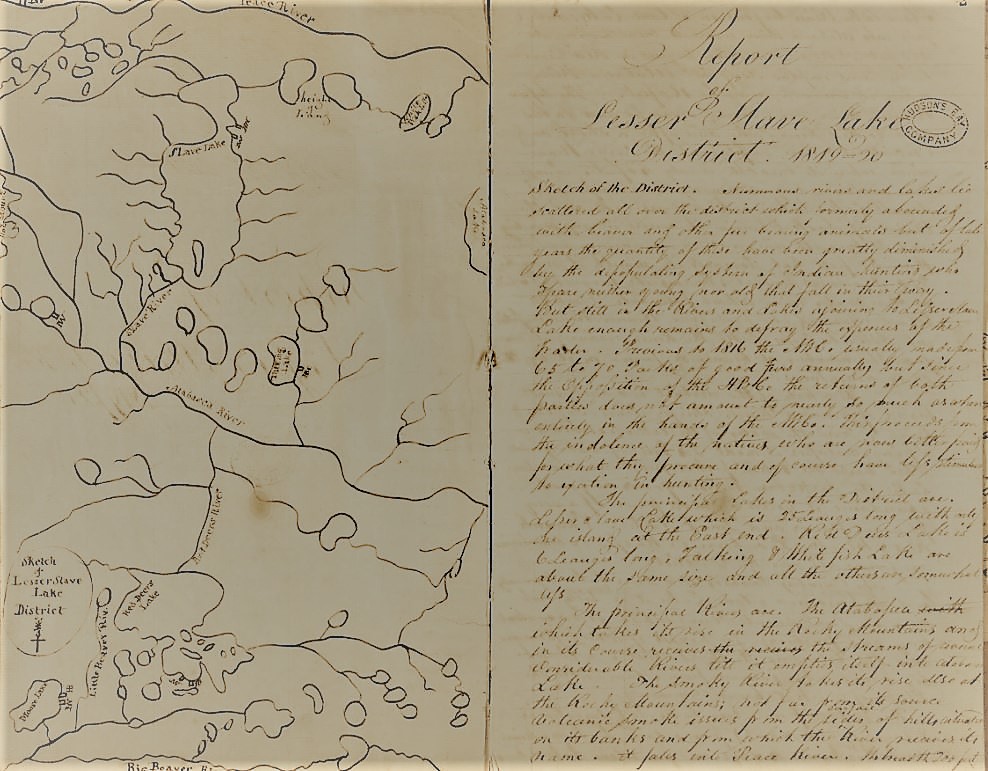 Peace River
height
of
Land
Slave Lake
Slave River
Atabasca River
Red Deers River
Red Deers
Lake
Little Beaver River
Moose Lake
Big Beaver Ri
Sketch
of
Lesser Slave
Lake
District
Report
of
Lesser Slave Lake
District. 1819-20
HUDSON'S BAY
COMPANY
Sketch of the District. Numerous rivers and lakes lie
scattered all over the district which formerly abounded
with beaver and other fur bearing animals but of late
years the quantity of these have been greatly diminished
by the depopulating system of Indian hunting who
spare neither young nor old that fall in their way.
But still in the Rivers and Lakes adjoining to Lesser Slave
Lake enough remains to defray the expences of the
trader. Previous to 1816 the NWCo usually made from
65 to 70 Packs of good furs annually but since
the Opposition of the HBCo the returns of both
parties does not amount to nearly so much as when
entirely in the hands of the NWCo. This proceeds from
the indolence of the natives who are now better paid
for what they procure and of course have less stimulus
to exertion in hunting.
The principal Lakes in the District are
Lesser Slave Lake which is 25 Leagues long with
one island at the East end. Red Deers Lake is
6 Leagues long, Talking & White fish Lake are
about the same size and all the others are somewhat
less
The principal Rivers are. The Atabasca with
which takes its rise in the Rocky Mountains and
in its Course receives the streams of several
Considerable Rivers till it empties itself into
Lake. The Smoky River takes its rise also at
the Rocky Mountains; not far from its source
Volcanic smoke issues from the sides of hills situated
on its banks and from which the River receives its
name. it falls into Peace River. 200